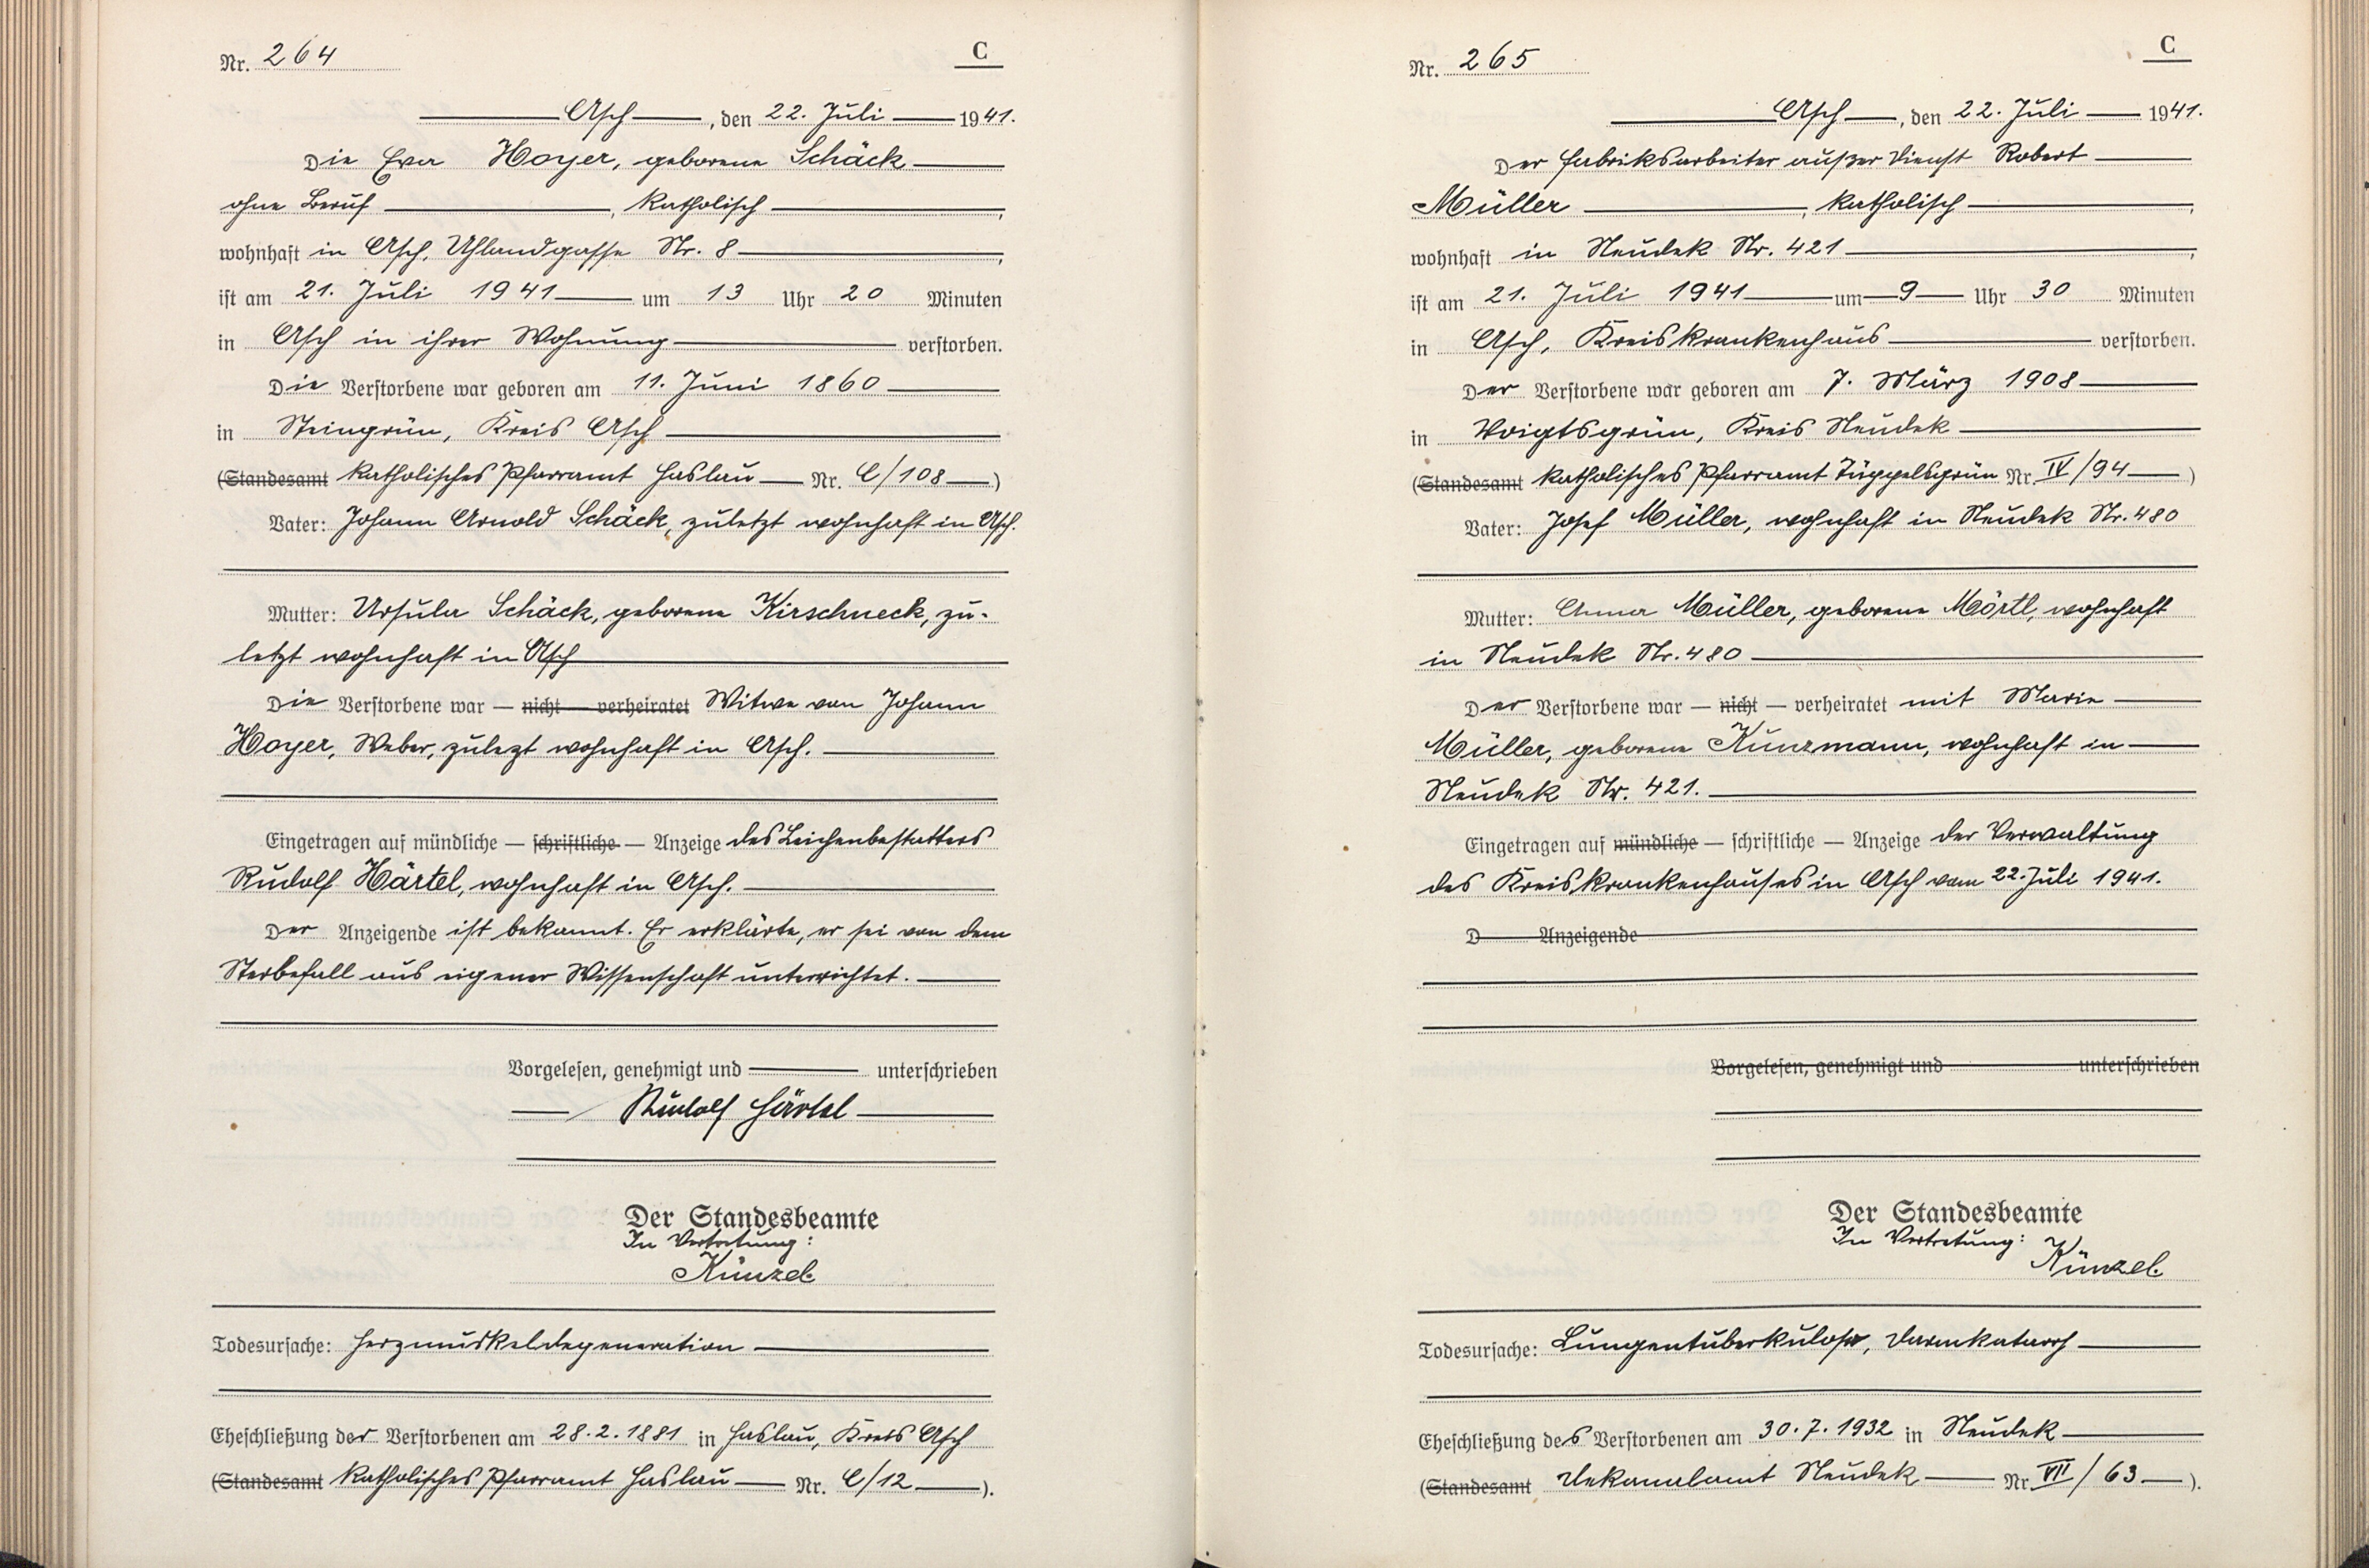 Nr. 264
C
Asch, den 22. Juli 1941.
Die Eva Hoyer, geborene Schäck
ohne Beruf, katholisch,
wohnhaft in Asch, Uhlandgasse Nr. 8,
ist am 21. Juli 1941 um 13 Uhr 20 Minuten
in Asch in ihrer Wohnung verstorben.
Die Verstorbene war geboren am 11. Juni 1860
in Steingrün, Kreis Asch
(Standesamt katholisches Pfarramt Haslau Nr. C/108)
Vater: Johann Arnold Schäck, zuletzt wohnhaft in Asch.
Mutter: Ursula Schäck, geborene Kirschneck, zu-
letzt wohnhaft in Asch
Die Verstorbene war — nicht — verheiratet Witwe von Johann
Hoyer, Weber, zulezt wohnhaft in Asch.
Eingetragen auf mündliche — schriftliche — Anzeige des Leichenbestatters
Rudolf Härtel, wohnhaft in Asch.
Der Anzeigende ist bekannt. Er erklärte, er sei von dem
Sterbefall aus eigener Wissenschaft unterrichtet.
Vorgelesen, genehmigt und unterschrieben
Rudolf Härtel
Der Standesbeamte
In Vertretung:
Künzel
Todesursache: Herzmuskeldegeneration
Eheschließung der Verstorbenen am 28.2.1881 in Haslau, Kreis Asch
(Standesamt katholisches Pfarramt Haslau Nr. C/12).
Nr. 265
C
Asch, den 22. Juli 1941.
Der Fabriksarbeiter außer Dienst Robert
Müller, katholisch,
wohnhaft in Neudek Nr. 421,
ist am 21. Juli 1941 um 9 Uhr 30 Minuten
in Asch, Kreiskrankenhaus verstorben.
Der Verstorbene war geboren am 7. März 1908
in Voigtsgrün, Kreis Neudek
(Standesamt katholisches Pfarramt Tüppelsgrün Nr. IV/94)
Vater: Josef Müller, wohnhaft in Neudek Nr. 480
Mutter: Anna Müller, geborene Mörtl, wohnhaft
in Neudek Nr. 480
Der Verstorbene war — nicht — verheiratet mit Marie
Müller, geborene Kunzmann, wohnhaft in
Neudek Nr. 421.
Eingetragen auf mündliche — schriftliche — Anzeige der Verwaltung
des Kreiskrankenhauses in Asch vom 22. Juli 1941.
D Anzeigende
Vorgelesen, genehmigt und unterschrieben
Der Standesbeamte
In Vertretung:
Künzel
Todesursache: Lungentuberkulose, Darmkatarrh
Eheschließung des Verstorbenen am 30.7.1932 in Neudek
(Standesamt Dekanalamt Neudek Nr. VII/63).